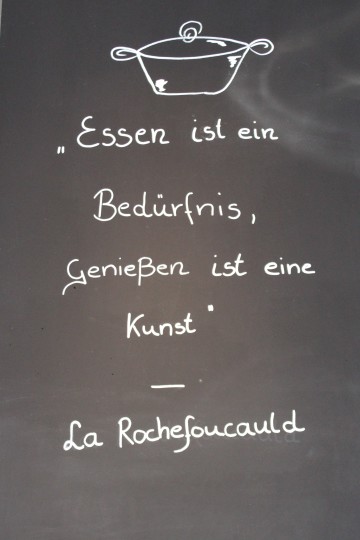 „Essen ist ein
Bedürfnis,
Genießen ist eine
Kunst"
—
La Rochefoucauld